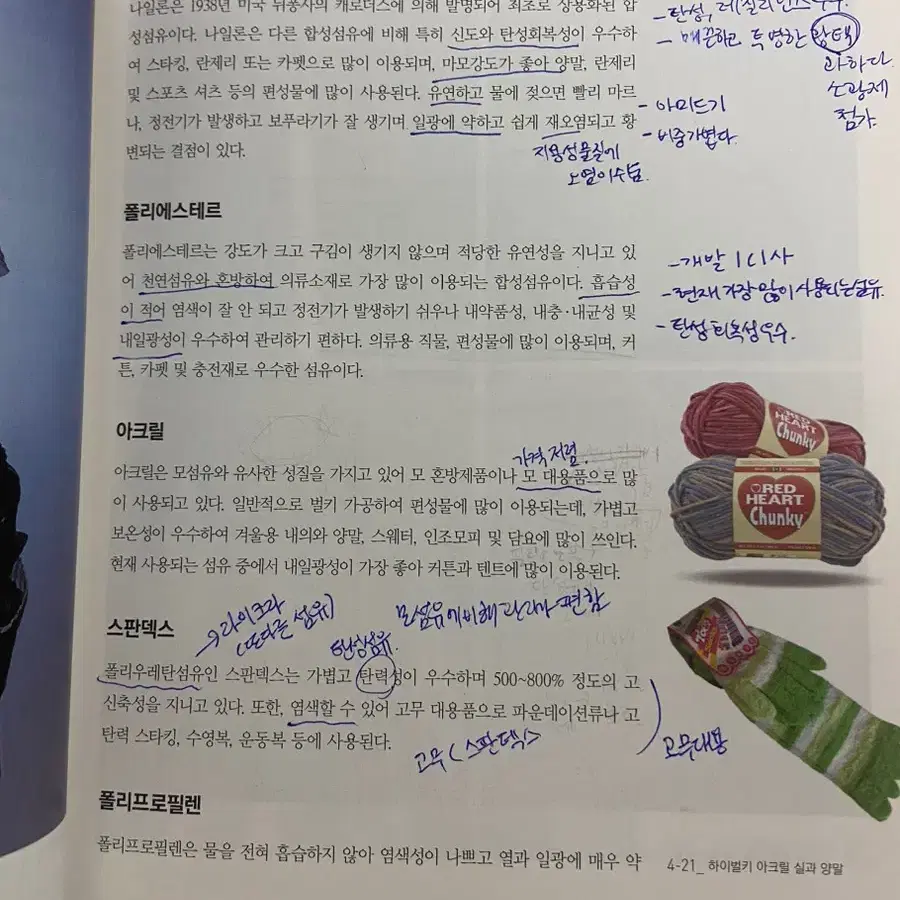 나일론은 1938년 미국 뒤퐁사의 캐로더스에 의해 발명되어 최초로 상용화된 합
성섬유이다. 나일론은 다른 합성섬유에 비해 특히 신도와 탄성회복성이 우수하
여 스타킹, 란제리 또는 카펫으로 많이 이용되며, 마모강도가 좋아 양말, 란제리
및 스포츠 셔츠 등의 편성물에 많이 사용된다. 유연하고 물에 젖으면 빨리 마르
나, 정전기가 발생하고 보푸라기가 잘 생기며 일광에 약하고 쉽게 재오염되고 황
변되는 결점이 있다.
지용성물질에
- 탄성, 레질리언스우수.
- 매끈하고 투명한 광택
과하다
소광제
첨가.
- 아미드기
- 비중가볍다.
폴리에스테르
폴리에스테르는 강도가 크고 구김이 생기지 않으며 적당한 유연성을 지니고 있
어 천연섬유와 혼방하여 의류소재로 가장 많이 이용되는 합성섬유이다. 흡습성
이 적어 염색이 잘 안 되고 정전기가 발생하기 쉬우나 내약품성, 내충·내균성 및
내일광성이 우수하여 관리하기 편하다. 의류용 직물, 편성물에 많이 이용되며, 커
튼, 카펫 및 충전재로 우수한 섬유이다.
- 개발 ICI사
- 현재 가장 많이 사용되는섬유.
- 탄성회복성우수.
아크릴
가격저렴.
아크릴은 모섬유와 유사한 성질을 가지고 있어 모 혼방제품이나 모 대용품으로 많
이 사용되고 있다. 일반적으로 벌키 가공하여 편성물에 많이 이용되는데, 가볍고
보온성이 우수하여 겨울용 내의와 양말, 스웨터, 인조모피 및 담요에 많이 쓰인다.
현재 사용되는 섬유 중에서 내일광성이 가장 좋아 커튼과 텐트에 많이 이용된다.
모섬유에비해관리가편함
RED HEART
Chunky
RED HEART
Chunky
스판덱스
→라이크라
(또다른 섬유)
탄성섬유.
폴리우레탄섬유인 스판덱스는 가볍고 탄력성이 우수하며 500~800% 정도의 고
신축성을 지니고 있다. 또한, 염색할 수 있어 고무 대용품으로 파운데이션류나 고
탄력 스타킹, 수영복, 운동복 등에 사용된다.
고무<스판덱스
고무대용
폴리프로필렌
폴리프로필렌은 물을 전혀 흡습하지 않아 염색성이 나쁘고 열과 일광에 매우 약
4-21_ 하이벌키 아크릴 실과 양말